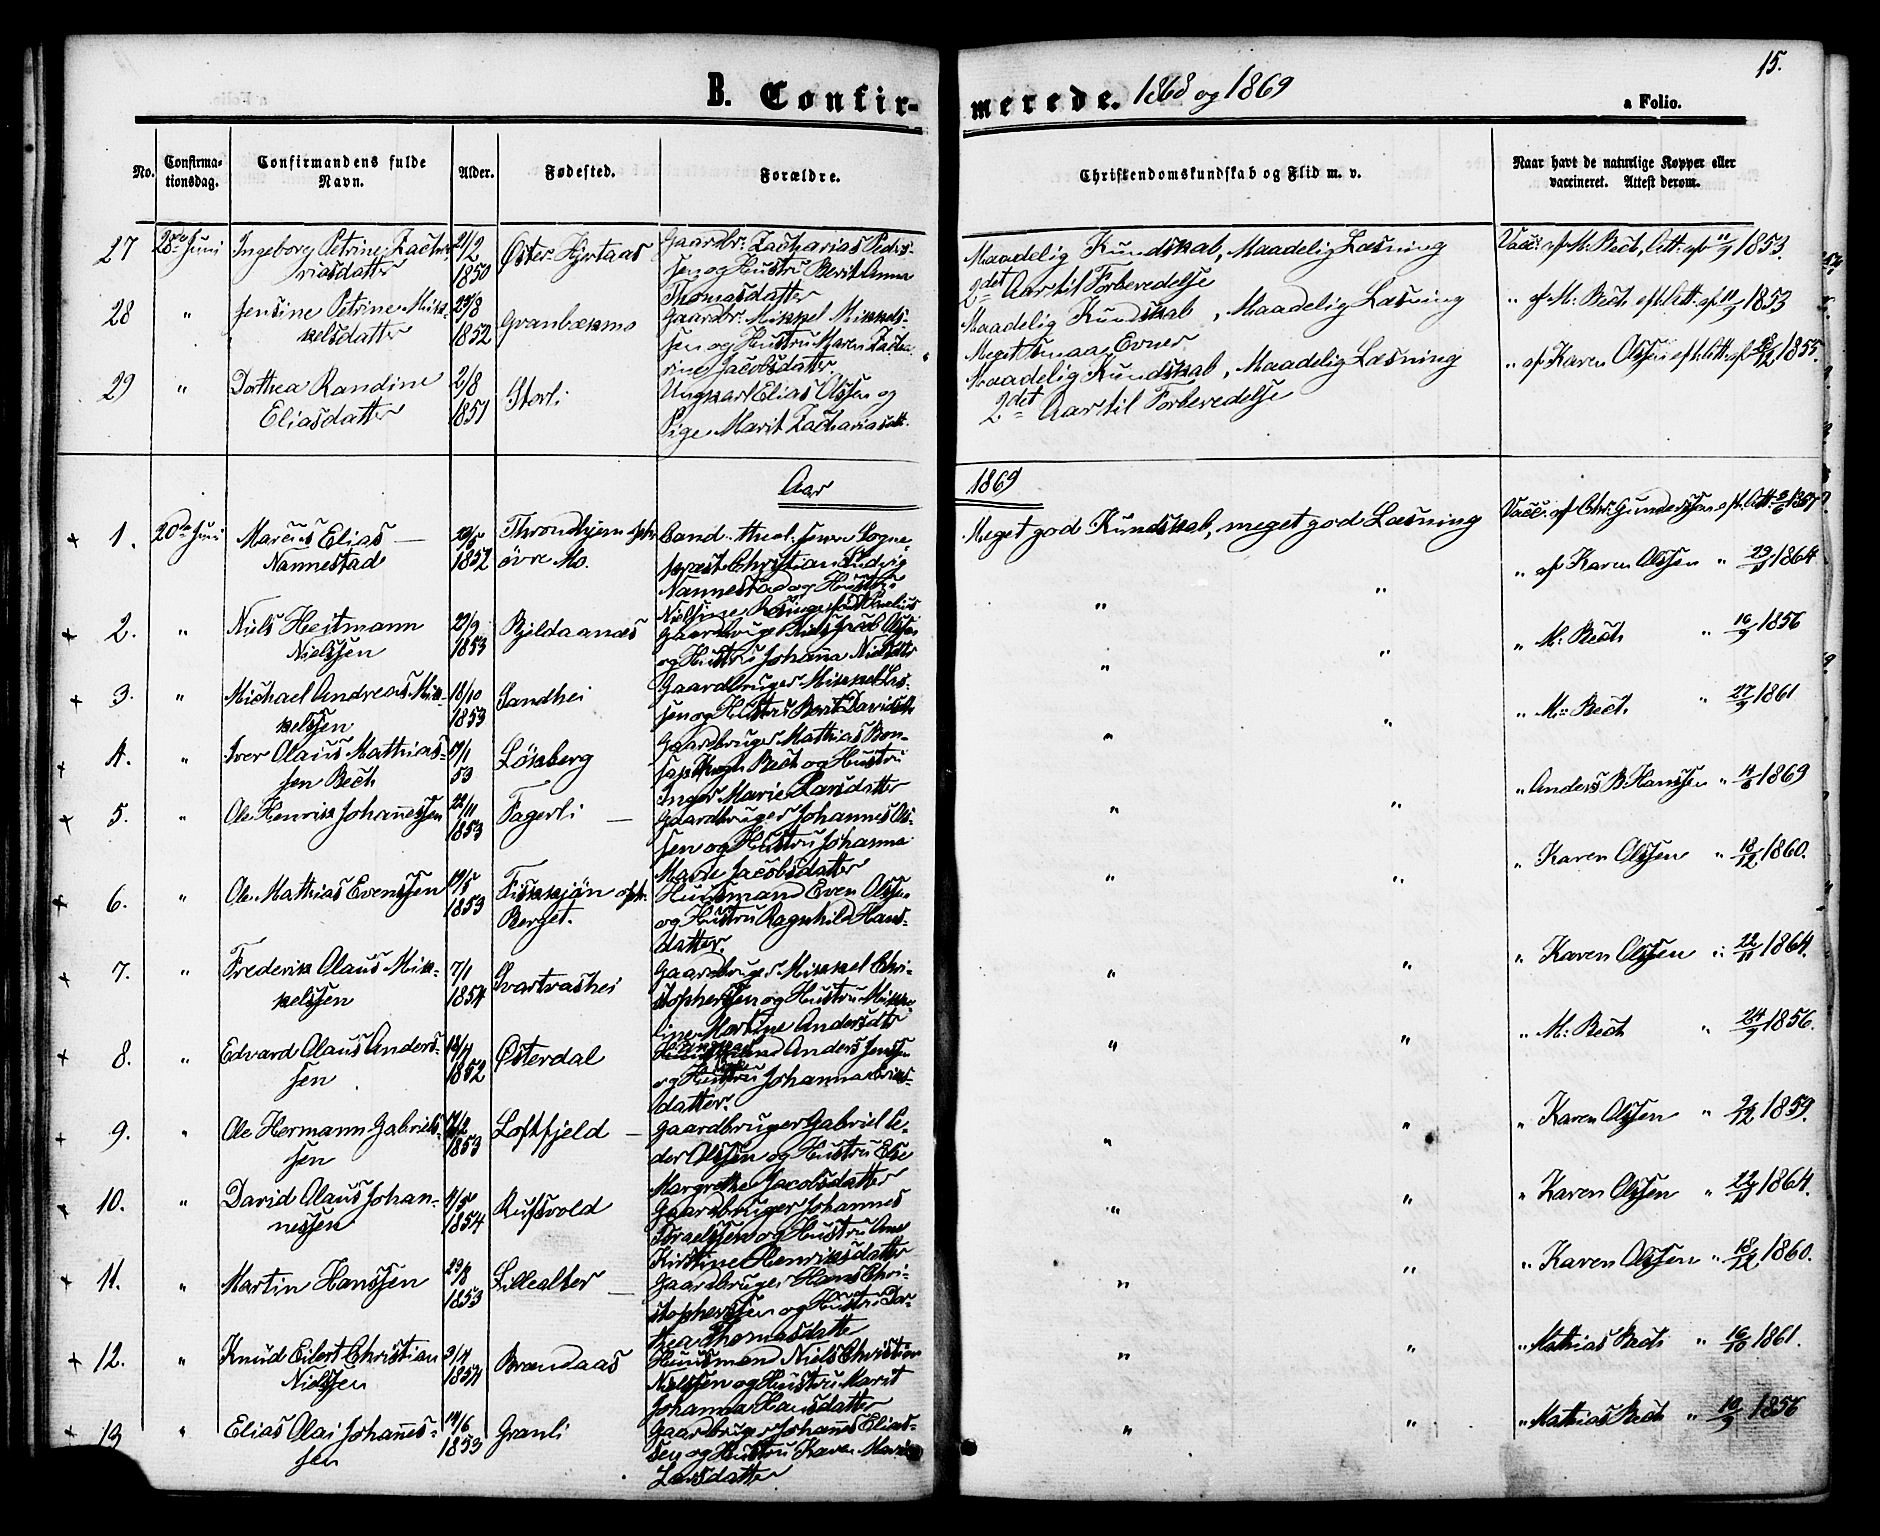 15.
B. Confirmerede. 1868 og 1869
a Folio.
No. Confirmationsdag. Confirmandens fulde Navn. Alder. Fødested. Forældre. Christendomskundskab og Flid m. v. Naar havt de naturlige Kopper eller vaccineret. Attest derom.
27 28de Juni Ingeborg Petrine Zachariasdatter 1850 Øster Hjertaas Gaardbr: Zacharias Peders-
sen og Hustru Berit Anna
Thomasdatter
Maadelig Kundskab, Maadelig Læsning
2det Aar til Forberedelse
Vacc: af M. Bech, Att: af 11/9 1853.
28 " Jensine Petrine Mik-
kelsdatter 29/8 1852 Granbækmo Gaardbr: Mikkel Mikkels-
sen og Hustru Maren
Jacobsdatter.
Maadelig Kundskab, Maadelig Læsning
Meget smaa Evner
" af M: Bech eft. Att. af 11/9 1853
29 " Dorthea Randine
Eliasdatter 2/8 1851 Storli Ungkarl Elias Olssen og
Pige Marit Zachariasdtt.
Maadelig Kundskab, Maadelig Læsning
2det Aar til Forberedelse
" af Karen Olssen eft. Att. af 1855.
Aar 1869
+ 1. 20de Juni Marcus Elias
Nannestad 1852 Throndhjem
övre Mo. Cand. theol. Sogne-
præst Christian Ludvig
Nannestad og Hustru
Meget god Kundskab, meget god Læsning
Vacc: af Chr: Gunderssen eft. Att.
+ 2. " Niels Heitmann
Nielssen 29/9 1853 Bjeldaanæs Gaardbruger Niels Jacob Olssen
og Hustru Johanna Nielsdtr
" "
" af Karen Olssen " 1864
+ 3. " Michael Andreas Mik-
kelssen 18/10 1853 Sandhei Gaardbruger Mikkel
sen og Hustru Berit Davidsdtr
" "
" M: Bech " 16/9 1856
+ 4. " Iver Olaus Mathias-
sen Bech 53 Lökberg Gaardbruger Mathias Bon-
Bech og Hustru
Inger Marie Larsdatter
" "
" M: Bech " 27/9 1861
+ 5. " Ole Henrik Johannessen 1853 Fagerli Gaardbruger Johannes Ol-
sen og Hustru Johanna
Marie Jacobsdatter
" "
" Anders B. Hanssen " 1869
+ 6. " Ole Mathias Evenssen 19/5 1853 Fiskkjön
Berget. Huusmand Even Olssen
og Hustru Ragnhild Hans-
datter.
" "
" Karen Olssen " 18/12 1860.
+ 7. " Frederik Olaus Mik-
kelssen 7/1 1854 Svartvashei Gaardbruger Mikkel Chri-
stopherssen og Hustru Mikke-
line Martine Andersdtr
" "
" Karen Olssen " 22/11 1864.
+ 8. " Edvard Olaus Anders-
sen 1852 Østerdal Anders Jenssen
og Johanna
datter.
" "
" M: Bech " 24/9 1856.
+ 9. " Ole Hermann Gabriels-
sen 1853 Loftfjeld Gaardbruger Gabriel Pe-
der Olssen og Hustru Else
Margrethe Jacobsdatter
" "
" Karen Olssen " 1859.
+ 10. " David Olaus Johan-
nessen 1854 Rufsvold Gaardbruger Johannes
Israelssen og Hustru Ane
Kirstine Henriksdatter
" "
" Karen Olssen " 22/11 1864.
+ 11. " Martin Hanssen 29/8 1853 Lillealter Gaardbruger Hans Chri-
stopherssen og Hustru Dor-
thea Thomasdatte
" "
" Karen Olssen " 18/12 1860.
+ 12. " Knud Eilert Christian
Nielssen 1854 Brændaas Huusmand Niels Christian
Nielssen og Hustru Marit
Johanna Hansdatter
" "
" Mathias Bech " 16/10 1861.
+ 13 " Elias Olai Johannes-
sen 14/6 1853 Granli Gaardbruger Johannes Elias-
sen og Hustru Karen Marie
Larsdatter
" "
" Mathias Bech " 10/9 1856